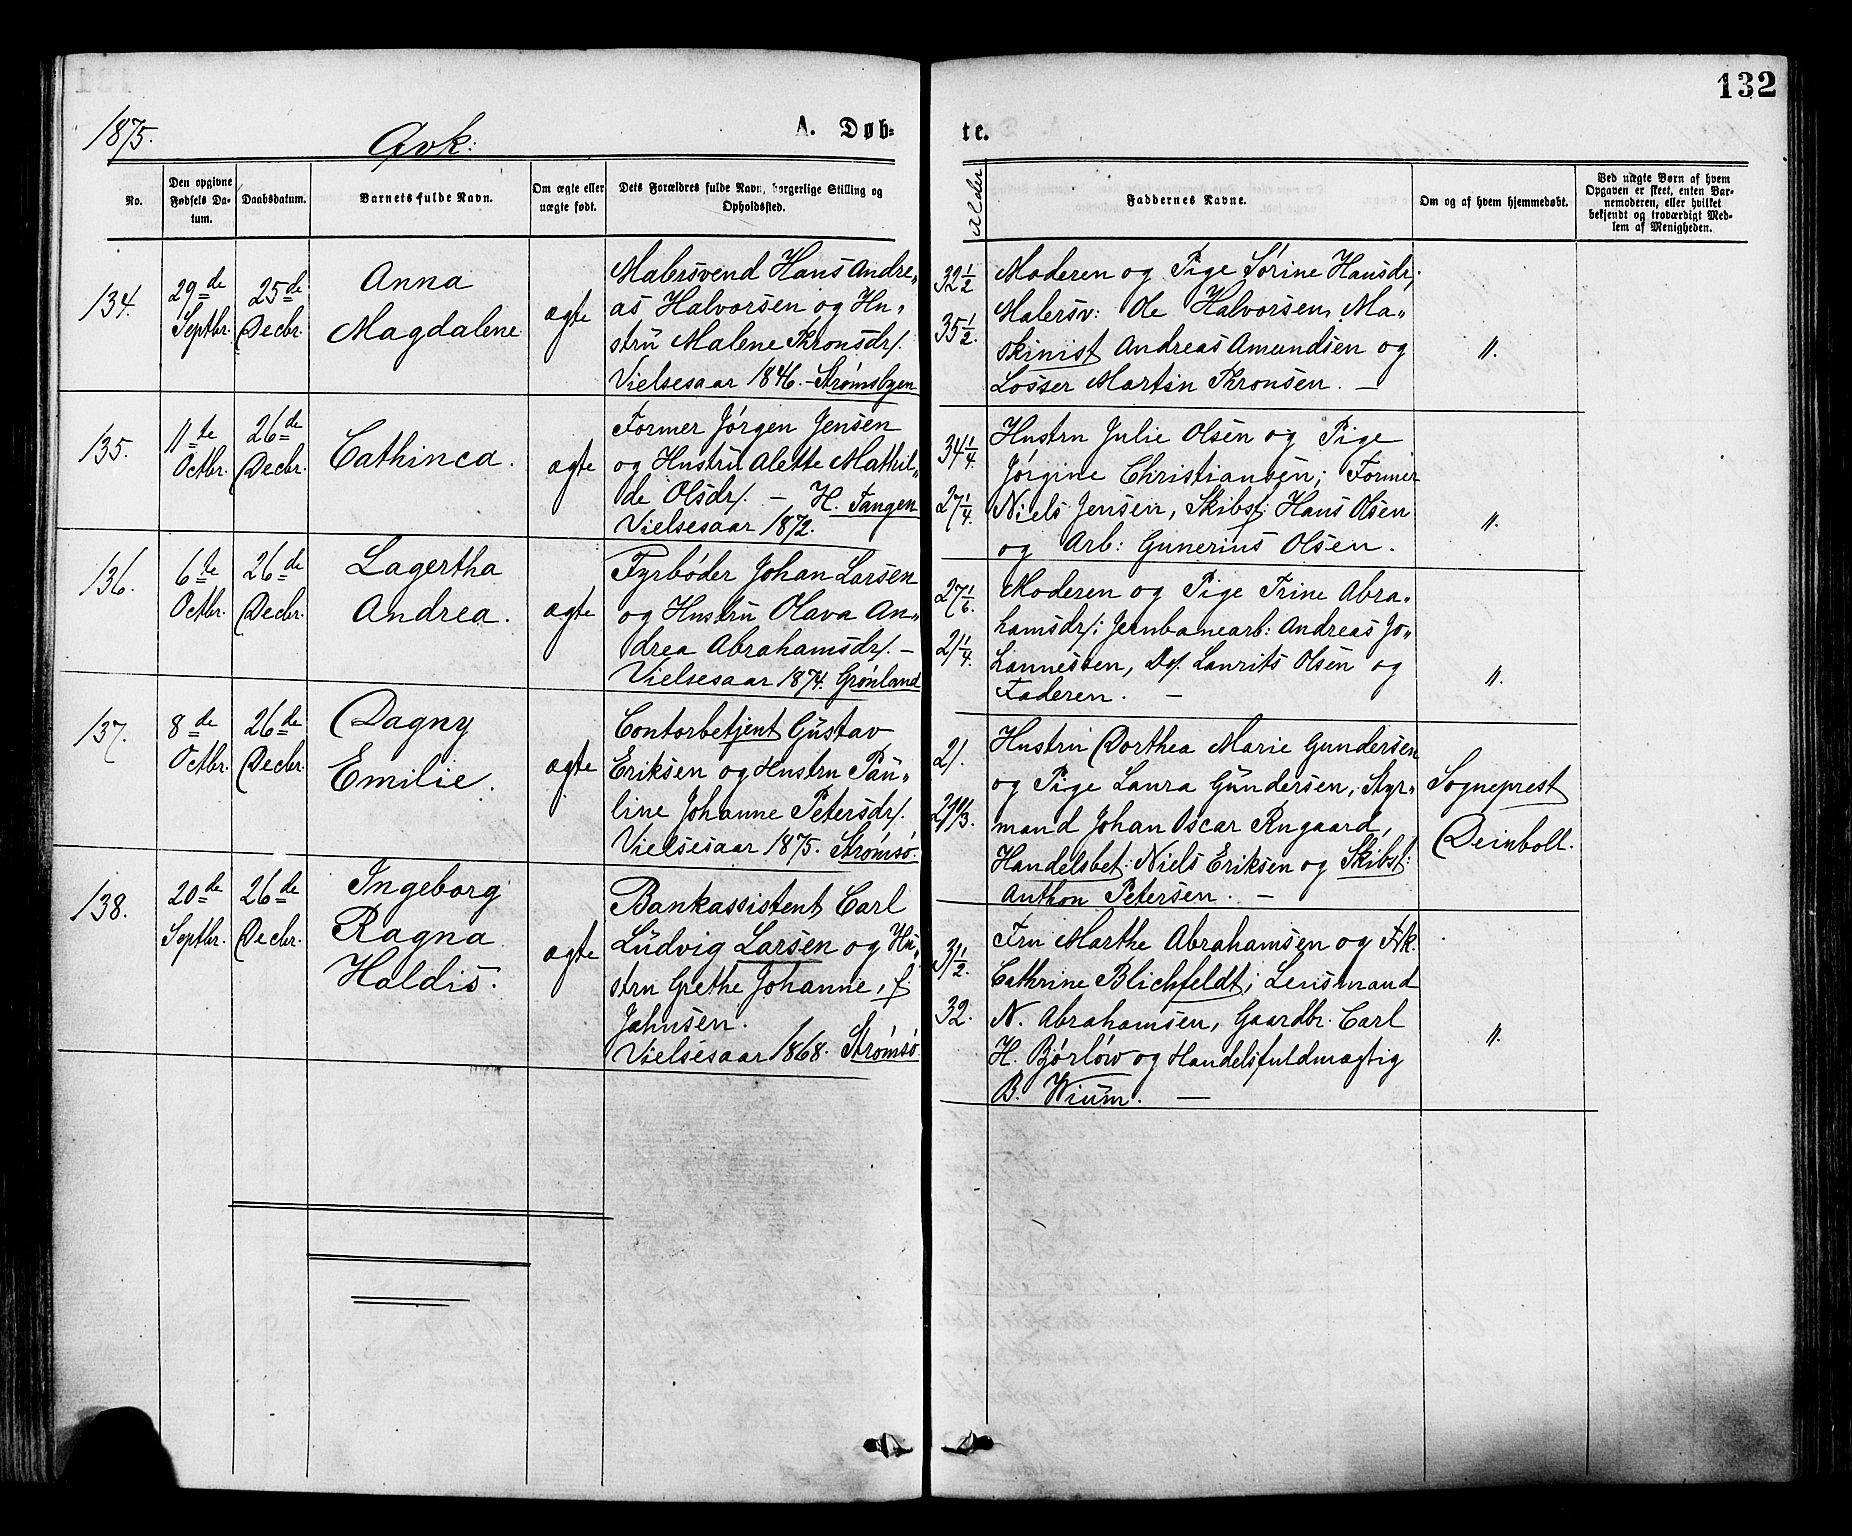 132
1875.
Qvk:
A. Døb-
te.
No.
Den opgivne Fødsels Da-tum.
Daabsdatum.
Barnets fulde Navn.
Om ægte eller uægte født.
Dets Forældres fulde Navn, borgerlige Stilling og Opholdssted.
Alder
Faddernes Navne.
Om og af hvem hjemmedøbt.
Ved uægte Børn af hvem Opgaven er skeet, enten Bar-nemoderen, eller hvilket bekjendt og troværdigt Med-lem af Menigheden.
134.
29de Septbr.
25de Decbr.
Anna
Magdalene
ægte
Malersvend Hans Andre„
as Halvorsen og Hu„
stru Malene Thronsdr.
Vielsesaar 1846. - Strømsbyen
32 1/2
35 1/2.
Moderen og Pige Sørine Hansdr;
Malersv: Ole Halvorsen, Ma„
skinist Andreas Amundsen og
Losser Martin Thronsen. —
"
135.
11te Octbr.
26de Decbr.
Cathinca.
ægte
Former Jørgen Jensen
og Hustru Alette Mathil„
de Olsdr. — H. Tangen
Vielsesaar 1872.
34 1/4
27 1/4.
Hustru Julie Olsen og Pige
Jørgine Christiansen; Former
Niels Jensen, Skibst: Hans Olsen
og Arb: Gunerius Olsen.
"
136.
6te Octbr.
26de Decbr.
Lagertha
Andrea.
ægte
Fyrbøder Johan Larsen
og Hustru Olava An„
drea Abrahamsdr. —
Vielsesaar 1874. Grønland
27 1/6
21 1/4.
Moderen og Pige Trine Abra„
hamsdr; Jernbanearb: Andreas Jo„
hannesen, Do. Laurits Olsen og
Faderen. —
"
137.
8de Octbr.
26de Decbr.
Dagny
Emilie.
ægte
Contorbetjent Gustav
Eriksen og Hustru Pau„
line Johanne Petersdr.
Vielsesaar 1875. Strømsø.
21.
Hustru Dorthea Marie Gundersen
og Pige Laura Gundersen, Styr„
mand Johan Oscar
Handelsbet: Niels Eriksen og Skibst:
Anthon Petersen. —
Sogneprest
Deinboll.
138.
20de Septbr.
26de Decbr.
Ingeborg
Ragna
Haldis.
ægte
Bankassistent Carl
Ludvig Larsen og Hu„
stru Grethe Johanne, f.
Jahnsen.
Vielsesaar 1868. Strømsø
31 1/2.
32.
Fru Marthe Abrahamsen og Frk.
Cathrine Blichfeldt; Lensmand
N. Abrahamsen, Gaardbr. Carl
H. Bjørløw og Handelsfuldmægtig
B. Wium. —
"